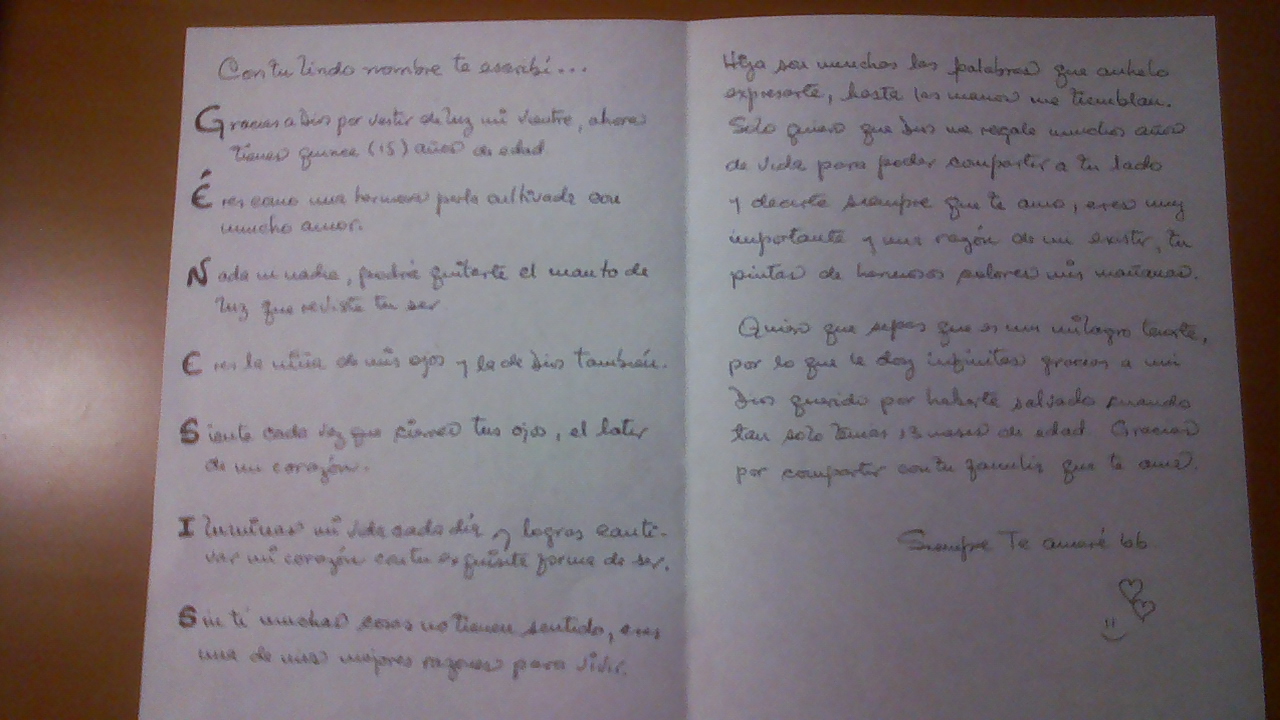 Con tu lindo nombre te escribí...
Gracias a Dios por vestir de luz mi vientre, ahora
tienes quince (15) años de edad
Éres como una hermosa perla cultivada con
mucho amor.
Nada ni nadie, podrá quitarte el manto de
luz que reviste tu ser
Eres la niña de mis ojos y la de Dios también.
Siente cada vez que cierres tus ojos, el latir
de mi corazón.
Iluminas mi vida cada día y logras cauti-
var mi corazón con tu exquisita forma de ser.
Sin ti muchas cosas no tienen sentido, eres
una de mis mejores razones para vivir.
Hija son muchas las palabras que anhelo
expresarte, hasta las manos me tiemblan.
Solo quiero que Dios me regale muchos años
de vida para poder compartir a tu lado
y decirte siempre que te amo, eres muy
importante y mi razón de mi existir, tu
pintas de hermosos colores mis mañanas.
Quiero que sepas que es un milagro tenerte,
por lo que le doy infinitas gracias a mi
Dios querido por haberte salvado cuando
tan solo tenias 13 meses de edad Gracias
por compartir con tu familia que te ama.
Siempre Te amaré bb